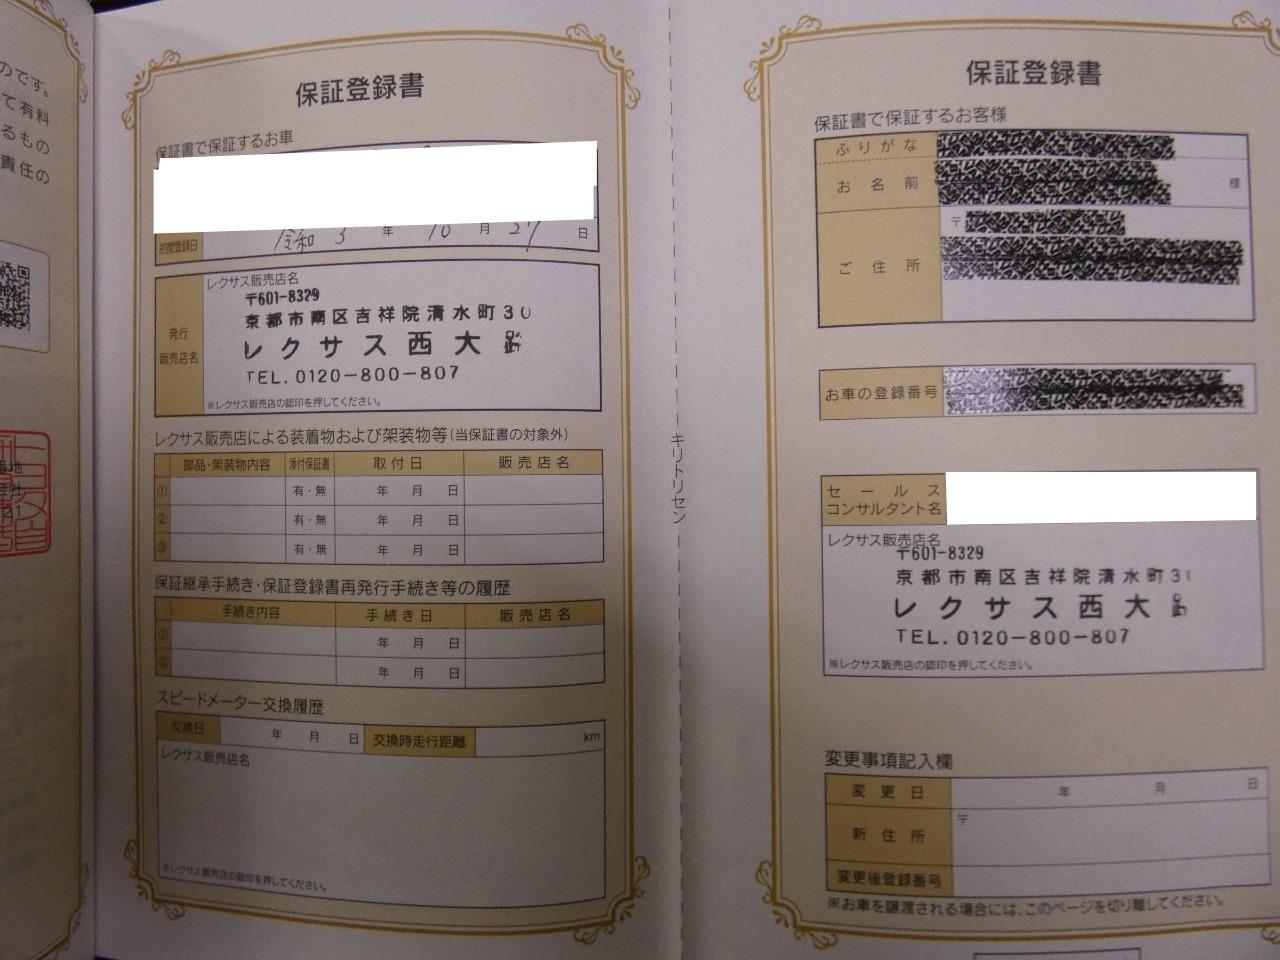 のです。
て有料
るもの
責任の
番地
会社
21
保証登録書
保証書で保証するお車
初度登録日 令和 3 年 10 月 27 日
レクサス販売店名
発行
販売店名
〒601-8329
京都市南区吉祥院清水町30
レクサス西大路
TEL.0120-800-807
※レクサス販売店の認印を押してください。
レクサス販売店による装着物および架装物等(当保証書の対象外)
部品・架装物内容 添付保証書 取付日 販売店名
① 有・無 年 月 日
② 有・無 年 月 日
③ 有・無 年 月 日
保証継承手続き・保証登録書再発行手続き等の履歴
手続き内容 手続き日 販売店名
① 年 月 日
② 年 月 日
スピードメーター交換履歴
交換日 年 月 日 交換時走行距離 km
レクサス販売店名
※レクサス販売店の認印を押してください。
キリトリセン
保証登録書
保証書で保証するお客様
ふりがな
お名前 様
〒
ご住所
お車の登録番号
セールス
コンサルタント名
レクサス販売店名
〒601-8329
京都市南区吉祥院清水町3
レクサス西大路
TEL.0120-800-807
※レクサス販売店の認印を押してください。
変更事項記入欄
変更日 年 月 日
〒
新住所
変更後登録番号
※お車を譲渡される場合には、このページを切り離してください。